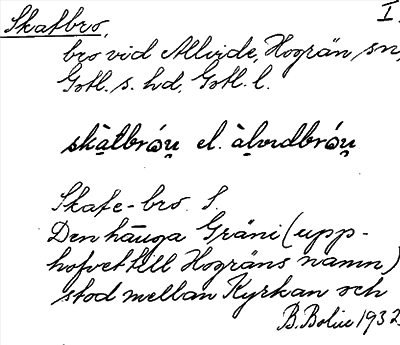 Skatbro, I.
bro vid Allvide, Hogrän sn,
Gotl. s. hd, Gotl. l.
skàtbrǿu̯ el. àlvıdbrǿu̯
Skate-bro. S.
Den häuga Gräni (upp-
hofvet till Hogräns namn)
stod mellan Kyrkan och
B. Bolin 1932